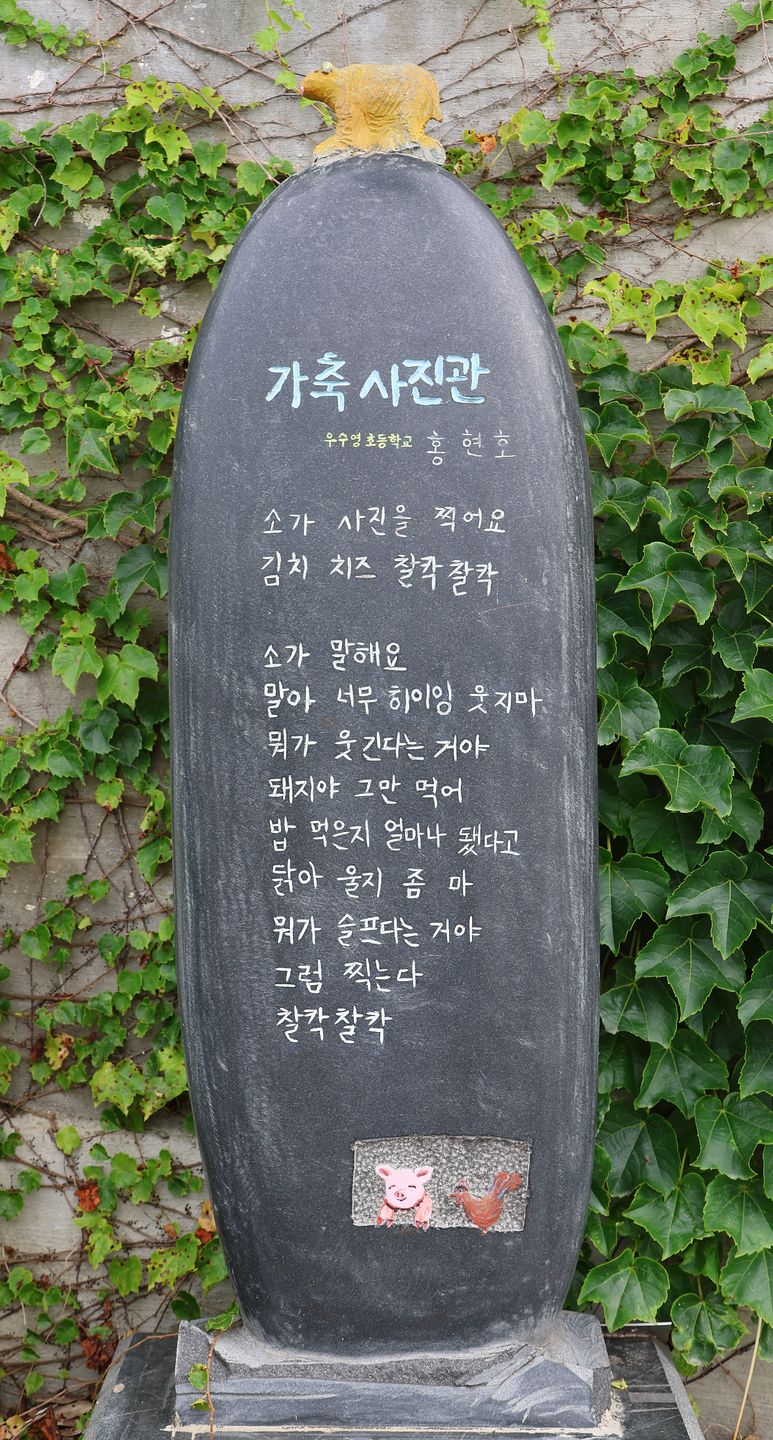 가축 사진관
우수영 초등학교 홍현호
소가 사진을 찍어요
김치 치즈 찰칵찰칵
소가 말해요
말아 너무 히이잉 웃지마
뭐가 웃긴다는 거야
돼지야 그만 먹어
밥 먹은지 얼마나 됐다고
닭아 울지 좀 마
뭐가 슬프다는 거야
그럼 찍는다
찰칵찰칵